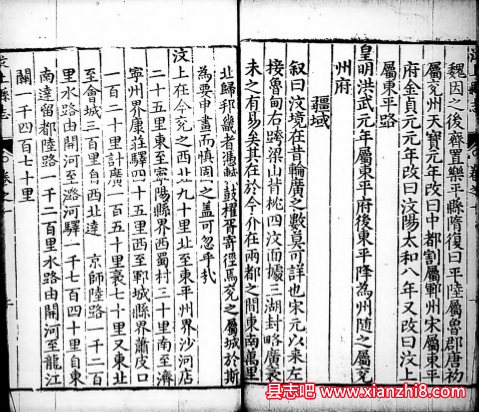 魏因之後齊置樂平縣隋復曰平陸屬魯郡唐初
屬兗州天寶元年改曰中都割屬鄆州宋屬東平
府金貞元元年改曰汶陽太和八年又改曰汶上
屬東平路
皇明洪武元年屬東平府後東平降為州隨之屬兗
州府
疆域
叙曰汶境在昔輪廣之數莫可詳也宋元以來左
接魯甸右跨梁山背桃四汶面據三湖封略廣袤
未之有易矣其在於今介在兩都之間東南萬里
北歸邦畿者憑軾鼓櫂胥寄徑焉兗之屬城於斯
為要申畫而慎固之蓋可忽乎哉
汶上在今兗之西北九十里北至東平州界沙河店
二十五里東至寧陽縣界西蜀村三十里南至濟
寧州界康莊驛四十五里西至鄆城縣界蕭皮口
一百二十里計廣一百五十里袤七十里又東北
至會城三百里自西北達 京師陸路一千二百
里水路由開河至潞河驛一千七百四十里自東
南達留都陸路一千二百里水路由開河至龍江
關一千四百七十里
汶上縣志 卷之一
县志吧 www.xianzhi8.com